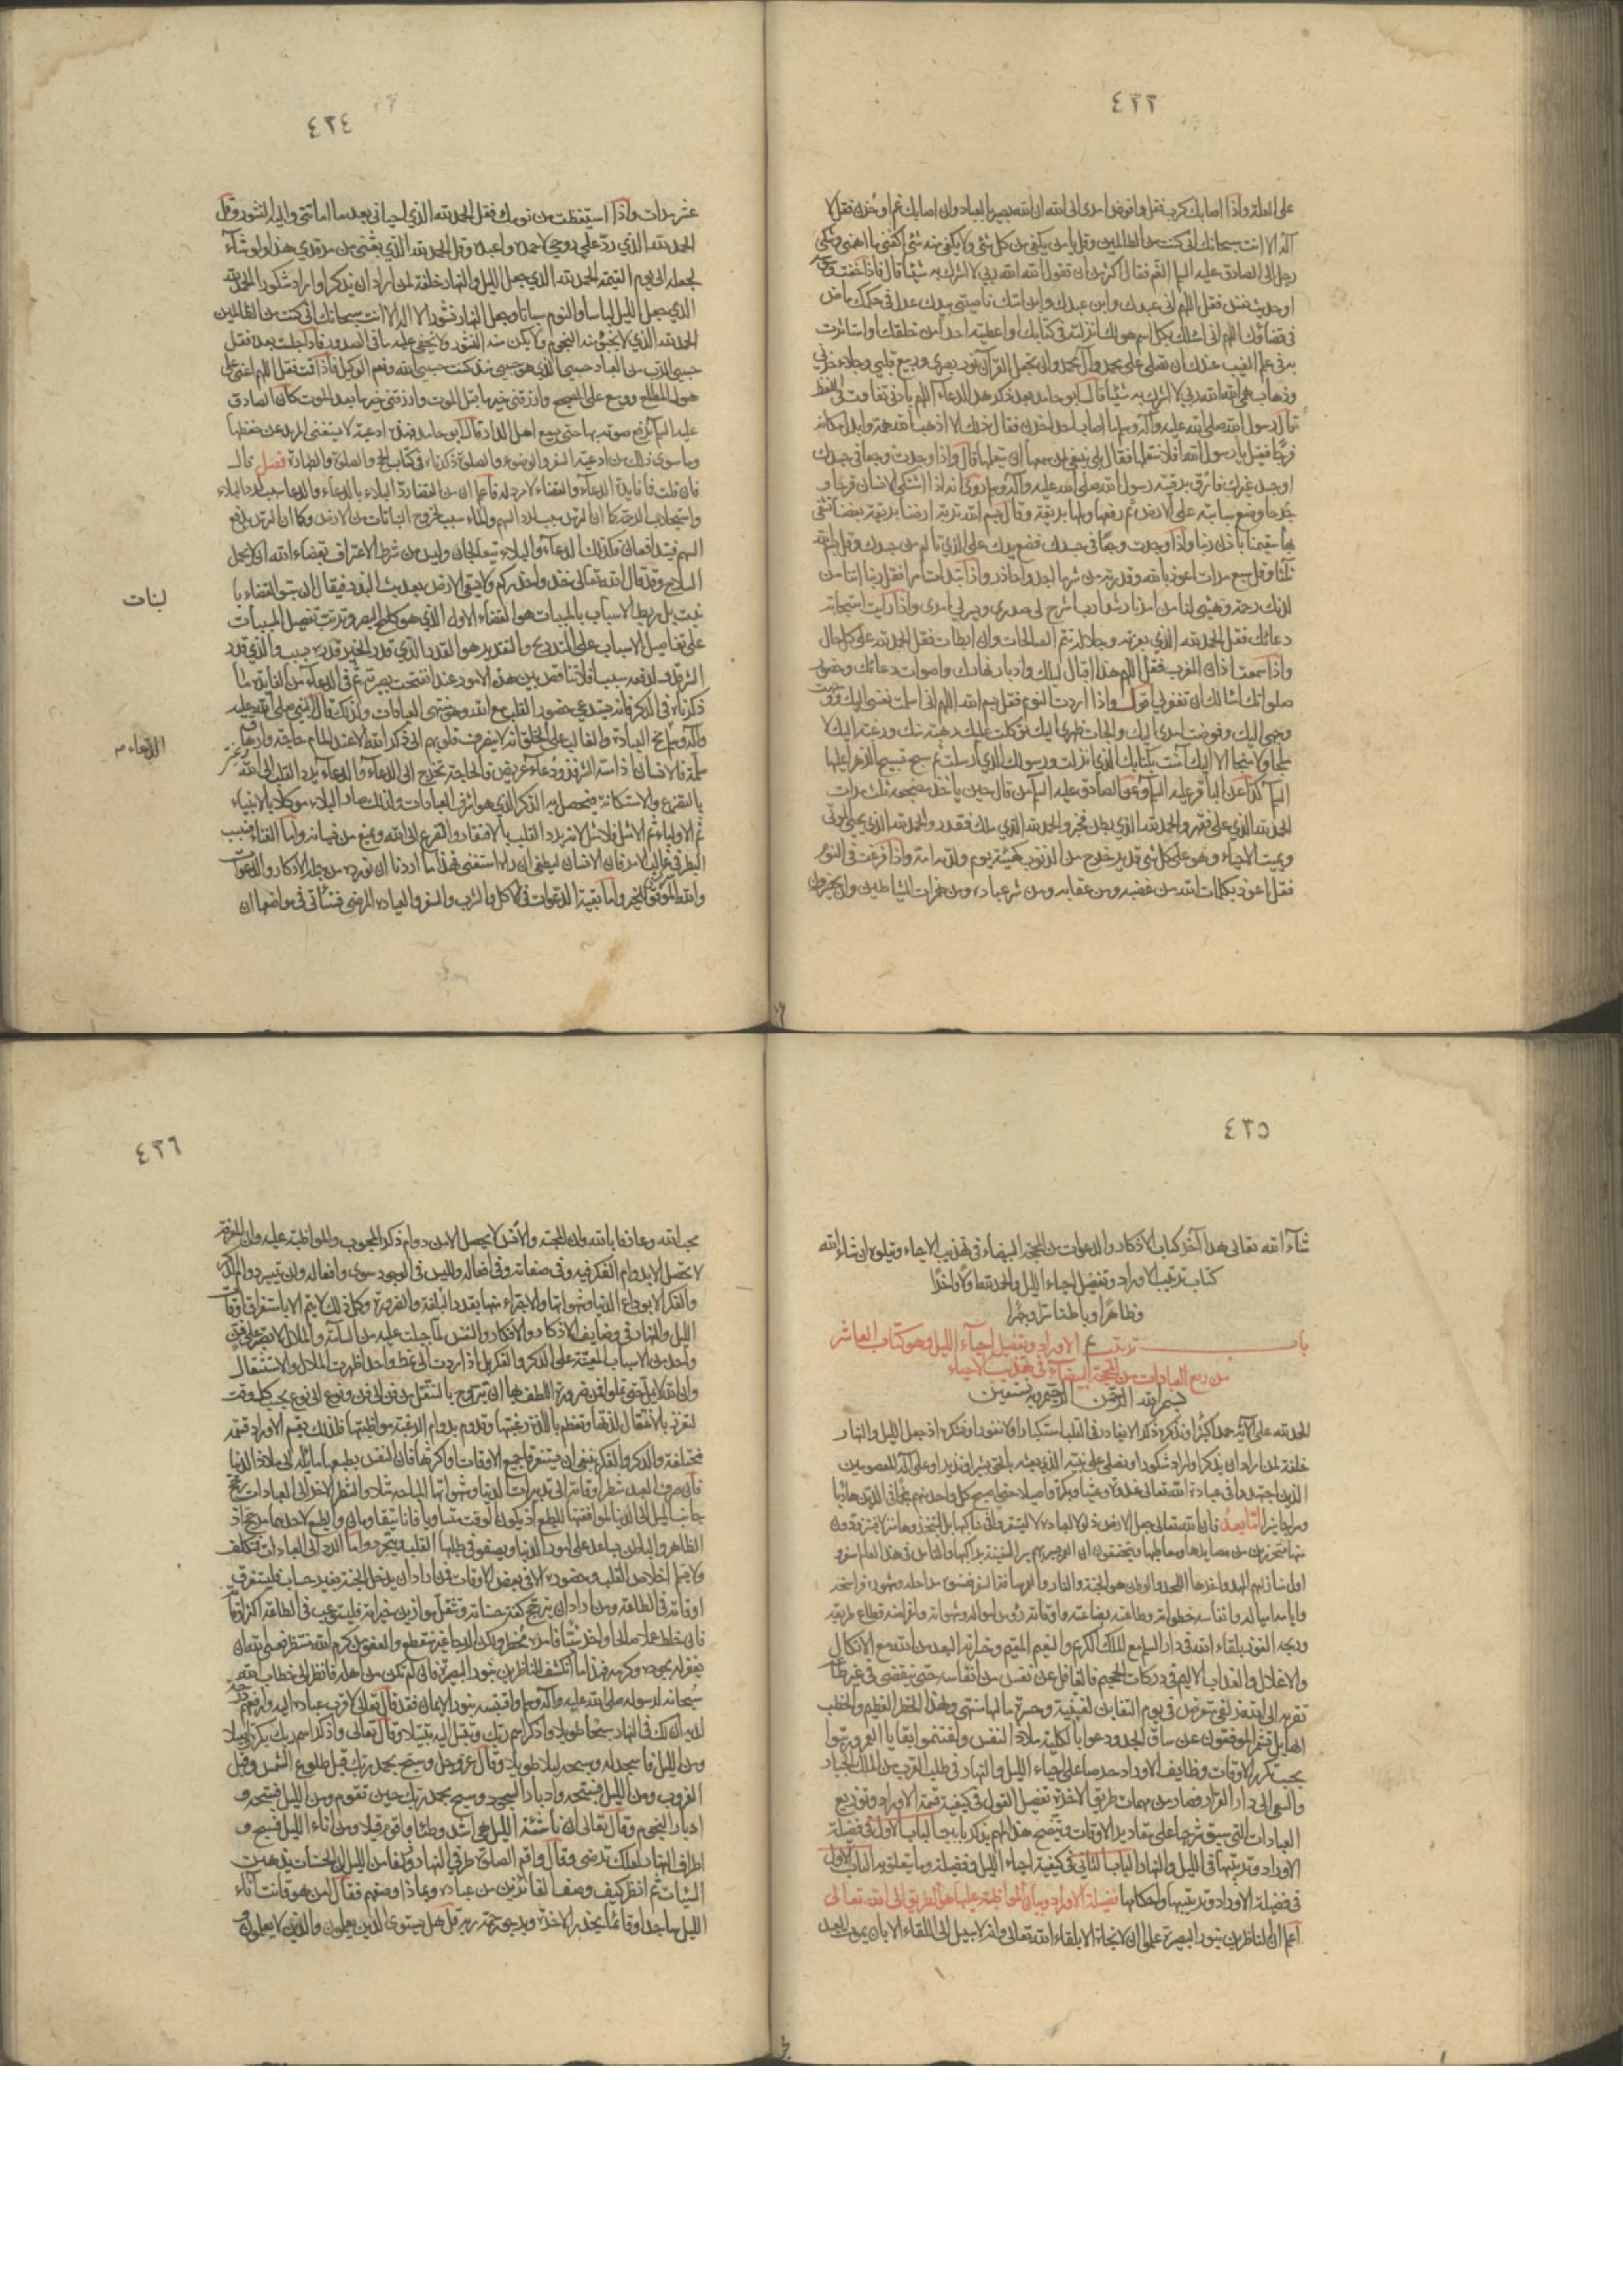 ٤٢٣
على العلة واذا اصابك كرب فقل وافوض امرى الى الله ان الله بصير بالعباد وان اصابك غم او حزن فقل لا
اله الا انت سبحانك انى كنت من الظالمين وقل يا من يكفى من كل شئ ولا يكفى منه شئ اكفنى ما اهمنى وشكى
رجل الى الصادق عليه السلم الغم فقال اكثر من ان تقول الله الله ربى لا اشرك به شيئا قال فاذا خفت
فقل اللهم انى عبدك وابن عبدك وابن امتك ناصيتى بيدك عدل فى حكمك ماض
فى قضاؤك اللهم انى اسئلك بكل اسم هو لك انزلته فى كتابك او اعطيته احدا من خلقك او استاثرت
به فى علم الغيب عندك ان تصلى على محمد وآل محمد وان تجعل القرآن نور بصرى وربيع قلبى وجلاء حزنى
وذهاب همى الله الله ربى لا اشرك به شيئا قال ابو حامد بعد ذكر هذا الدعاء اللهم بادنى تفاوت فى اللفظ
قال رسول الله صلى الله عليه وآله وسلم ما اصاب احدا حزن فقال ذلك الا اذهب الله همه وابدل مكانه
فرجا فقيل يا رسول الله افلا نتعلمها فقال بلى ينبغى لمن سمعها ان يتعلمها قال واذا وجدت وجعا فى جسدك
او جسد غيرك فارق برقية رسول الله صلى الله عليه وآله وسلم روى انه اذا اشتكى الانسان قرحا او
جرحا وضع سبابته على الارض ثم رفعها وقال بسم الله تربة ارضنا بريقة بعضنا تشفى
بها سقيمنا باذن ربنا واذا وجدت وجعا فى جسدك فضع يدك على الذى تالم من جسدك وقل بسم الله
ثلثا وقل سبع مرات اعوذ بالله وقدرته من شر ما اجد واحاذر واذا ابتدات امرا فقل ربنا اتنا من
لدنك رحمة وهيئ لنا من امرنا رشدا رب اشرح لى صدرى ويسر لى امرى واذا رايت استجابة
دعائك فقل الحمد لله الذى بعزته وجلاله تتم الصالحات وان ابطات فقل الحمد لله على كل حال
واذا سمعت اذان المغرب فقل اللهم هذا اقبال ليلك وادبار نهارك واصوات دعائك وحضور
صلواتك اسالك ان تغفر لى واذا اردت النوم فقل بسم الله اللهم انى اسلمت نفسى اليك ووجهت
وجهى اليك وفوضت امرى اليك والجات ظهرى اليك توكلت عليك رهبة منك ورغبة اليك لا
ملجا ولا منجا الا اليك آمنت بكتابك الذى انزلت ورسولك الذى ارسلت ثم سبح تسبيح الزهراء عليها
السلم كذا عن الباقر عليه السلم وعن الصادق عليه السلم من قال حين ياخذ مضجعه ثلث مرات
الحمد لله الذى علا فقهر والحمد لله الذى بطن فخبر والحمد لله الذى ملك فقدر والحمد لله الذى يحيى الموتى
ويميت الاحياء وهو على كل شئ قدير خرج من الذنوب كهيئة يوم ولدته امه واذا فزعت فى النوم
فقل اعوذ بكلمات الله من غضبه ومن عقابه ومن شر عباده ومن همزات الشياطين وان يحضرون
٤٢٤
عشر مرات واذا استيقظت من نومك فقل الحمد لله الذى احيانى بعد ما اماتنى واليه النشور وقل
الحمد لله الذى رد على روحى لاحمده واعبده وقل الحمد لله الذى بعثنى من مرقدى هذا ولو شاء
لجعله الى يوم القيمة الحمد لله الذى جعل الليل والنهار خلفة لمن اراد ان يذكر او اراد شكورا الحمد لله
الذى جعل الليل لباسا والنوم سباتا وجعل النهار نشورا لا اله الا انت سبحانك انى كنت من الظالمين
الحمد لله الذى لا يخبو منه النجوم ولا يكن منه الستور ولا يخفى عليه ما فى الصدور فاذا جلست بعد فقل
حسبى الرب من العباد حسبى الذى هو حسبى منذ كنت حسبى الله ونعم الوكيل فاذا قمت فقل اللهم اعنى على
هول المطلع ووسع على المضجع وارزقنى خير ما قبل الموت وارزقنى خير ما بعد الموت كان الصادق
عليه السلم يرفع صوته بها حتى يسمع اهل الدار قال ابو حامد فهذه ادعية لا يستغنى المريد عن حفظها
وما سوى ذلك من ادعية السفر والوضوء والصلوة ذكرناه فى كتاب الحج والصلوة والطهارة فصل قال
فان قلت فما فايدة الدعاء والقضاء لا مرد له فاعلم ان من القضاء رد البلاء بالدعاء والدعا سبب لرد البلاء
واستجلاب الرحمة كما ان الترس سبب لرد السهم والماء سبب لخروج النباتات من الارض وكما ان الترس يدفع
السهم فيتدافعان فكذلك الدعاء والبلاء يتعالجان وليس من شرط الاعتراف بقضاء الله ان لا يحمل
السلاح وقد قال الله تعالى خذوا حذركم ولا يسقى الارض بعد بث البذر فيقال ان سبق القضاء با
لنبات
نبت بل ربط الاسباب بالمسببات هو القضاء الاول الذى هو كلمح البصر وترتب تفصيل المسببات
على تفاصيل الاسباب على التدريج والتقدير هو القدر والذى قدر الخير قدره بسبب والذى قدر
الشر قدر لدفعه سببا فلا تناقض بين هذه الامور عند من انفتحت بصيرته ثم فى الدعاء من الفايدة ما
ذكرناه فى الذكر فانه يستدعى حضور القلب مع الله وهو منتهى العبادات ولذلك قال النبى صلى الله عليه
وآله وسلم مخ العبادة والغالب على الخلق انه لا ينصرف قلوبهم الى ذكر الله الا عند المام حاجة وارهاق
الدعاء م
ملمة فالانسان اذا مسه الشر فذو دعاء عريض فالحاجة تحوج الى الدعاء والدعاء يرد القلب الى الله
بالتضرع والاستكانة فيحصل به الذكر الذى هو اشرف العبادات ولذلك صار البلاء موكلا بالانبياء
ثم الاولياء ثم الامثل فالامثل لانه يرد القلب بالافتقار والتضرع الى الله ويمنع من نسيانه واما الغناء فسبب
البطر فى غالب الامر فان الانسان ليطغى ان رآه استغنى فهذا ما اردنا ان نورده من جملة الاذكار والدعوات
والله الموفق للخير واما بقية الدعوات فى الاكل والشرب والسفر والعيادة المرضى فستأتى فى مواضعها ان
٤٢٥
شاء الله تعالى هذا آخر كتاب الاذكار والدعوات من المحجة البيضاء فى تهذيب الاحياء ويتلوه ان شاء الله
كتاب ترتيب الاوراد وتفصيل احياء الليل والحمد لله اولا واخرا
وظاهرا وباطنا سرا وجهرا
باب ترتيب الاوراد وتفصيل احياء الليل وهو كتاب العاشر
من ربع العبادات من المحجة البيضاء فى تهذيب الاحياء
بسم الله الرحمن الرحيم وبه نستعين
الحمد لله على آلائه حمدا كثيرا ونذكره ذكرا لا يغادر فى القلب استكبارا ولا نفورا ونشكره اذ جعل الليل والنهار
خلفة لمن اراد ان يذكر او اراد شكورا ونصلى على نبيه الذى بعثه بالحق بشيرا ونذيرا وعلى آله المعصومين
الذين اجتهدوا فى عبادة الله تعالى غدوة وعشيا وبكرة واصيلا حتى اصبح كل واحد منهم نجما فى الدين هاديا
وسراجا منيرا اما بعد فان الله تعالى جعل الارض ذلولا لعباده لا ليستقروا فى مناكبها بل ليتخذوها منزلا فيتزودون
منها محترزين من مصايدها ومعاطبها ويتحققون ان العمر يسير بهم سير السفينة براكبها والناس فى هذا العالم سفر و
اول منازلهم المهد واخرها اللحد والوطن هو الجنة والنار والعمر مسافة السفر فسنوه مراحله وشهوره فراسخه
وايامه امياله وانفاسه خطواته وطاعته بضاعته واوقاته رؤس امواله وشهواته واغراضه قطاع طريقه
وربحه الفوز بلقاء الله فى دار السلم مع الملك الكبير والنعيم المقيم وخسرانه البعد من الله مع الانكال
والاغلال والعذاب الاليم فى دركات الجحيم فالغافل عن نفس من انفاسه حتى ينقضى فى غير طاعة
تقربه الى الله زلفى متعرض فى يوم التغابن لغبينة وحسرة ما لها منتهى ولهذا الخطر العظيم والخطب
الهايل شمر الموفقون عن ساق الجد ودعوا بالكلية ملاذ النفس واغتنموا بقايا العمر ورتبوا
بحسب تكرر الاوقات وظايف الاوراد حرصا على احياء الليل والنهار فى طلب القرب من الملك الجبار
والسعى الى دار القرار وصار من مهمات طريق الاخرة تفصيل القول فى كيفية قسمة الاوراد وتوزيع
العبادات التى سبق شرحها على مقادير الاوقات ويتضح هذا المهم بذكر بابين الباب الاول فى فضيلة
الاوراد وترتيبها فى الليل والنهار الباب الثانى فى كيفية احياء الليل وفضيلته وما يتعلق به الباب الاول
فى فضيلة الاوراد وترتيبها واحكامها فضيلة الاوراد وبيان ان المواظبة عليها هى الطريق الى الله تعالى
اعلم ان الناظرين بنور البصيرة علموا ان لا نجاة الا بلقاء الله تعالى وانه لا سبيل الى اللقاء الا بان يموت العبد
٤٢٦
محبا لله وعارفا بالله وان المحبة والانس لا يحصل الا من دوام ذكر المحبوب والمواظبة عليه وان المعرفة
لا تحصل الا بدوام الفكر فيه وفى صفاته وفى افعاله وليس فى الوجود سوى وافعاله ولن يتيسر دوام الذكر
والفكر الا بوداع الدنيا وشهواتها والاجتزاء منها بقدر البلغة والضرورة وكل ذلك لا يتم الا باستغراق اوقات
الليل والنهار فى وظايف الاذكار والافكار والنفس لما جبلت عليه من السآمة والملال لا تصبر على فن
واحد من الاسباب المعينة على الذكر والفكر بل اذا ردت الى نمط واحد اظهرت الملال والاستثقال
وان الله لا يمل حتى تملوا فمن ضرورة اللطف بها ان تروح بالتنقل من فن الى فن ونوع الى نوع بحسب كل وقت
لتغزر بالانتقال لذتها وتعظم باللذة رغبتها وتدوم بدوام الرغبة مواظبتها فلذلك يقسم الاوراد قسمة
مختلفة والذكر والفكر ينبغى ان يستغرقا جميع الاوقات او اكثرها فان النفس بطبعها مائلة الى ملاذ الدنيا
فان صرف العبد شطر اوقاته الى تدبيرات الدنيا وشهواتها المباحة مثلا والشطر الاخر الى العبادات رجح
جانب الميل الى الدنيا لموافقتها الطبع اذ يكون الوقت متساويا فانى يتقاومان والطبع لاحدهما مرجح اذ
الظاهر والباطن يتساعد على امور الدنيا ويصفو فى طلبها القلب ويتجرد واما الرد الى العبادات فمتكلف
ولا يسلم اخلاص القلب وحضوره الا فى بعض الاوقات فمن اراد ان يدخل الجنة بغير حساب فليستغرق
اوقاته فى الطاعة ومن اراد ان يترجح كفة حسناته وتثقل موازين خيراته فليستوعب فى الطاعة اكثر اوقاته
فان خلط عملا صالحا واخر سيئا فامره مخطر ولكن الرجا غير منقطع والعفو من كرم الله منتظر فعسى الله ان
يغفر له بجوده وكرمه فهذا ما انكشف للناظرين بنور البصيرة فان لم تكن من اهله فانظر الى خطاب الله
سبحانه لرسوله صلى الله عليه وآله وسلم واقتبسه بنور الايمان فقد قال تعالى لاقرب عباده اليه وارفعهم درجة
لديه ان لك فى النهار سبحا طويلا واذكر اسم ربك وتبتل اليه تبتيلا وقال تعالى واذكر اسم ربك بكرة واصيلا
ومن الليل فاسجد له وسبحه ليلا طويلا وقال عز وجل وسبح بحمد ربك قبل طلوع الشمس وقبل
الغروب ومن الليل فسبحه وادبار السجود وسبح بحمد ربك حين تقوم ومن الليل فسبحه و
ادبار النجوم وقال تعالى ان ناشئة الليل هى اشد وطئا واقوم قيلا ومن اناء الليل فسبح و
اطراف النهار لعلك ترضى وقال واقم الصلوة طرفى النهار وزلفا من الليل ان الحسنات يذهبن
السيئات ثم انظر كيف وصف الفائزين من عباده وبماذا وصفهم فقال امن هو قانت آناء
الليل ساجدا وقائما يحذر الاخرة ويرجو رحمة ربه قل هل يستوى الذين يعلمون والذين لا يعلمون